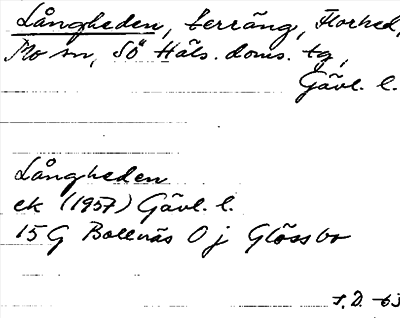 Långheden, terräng, Florhed,
Mo sn, Sö Häls. doms. tg,
Gävl. l.
Långheden
ek (1957) Gävl. l.
15 G Bollnäs 0 j Glössbo
f.D. -63